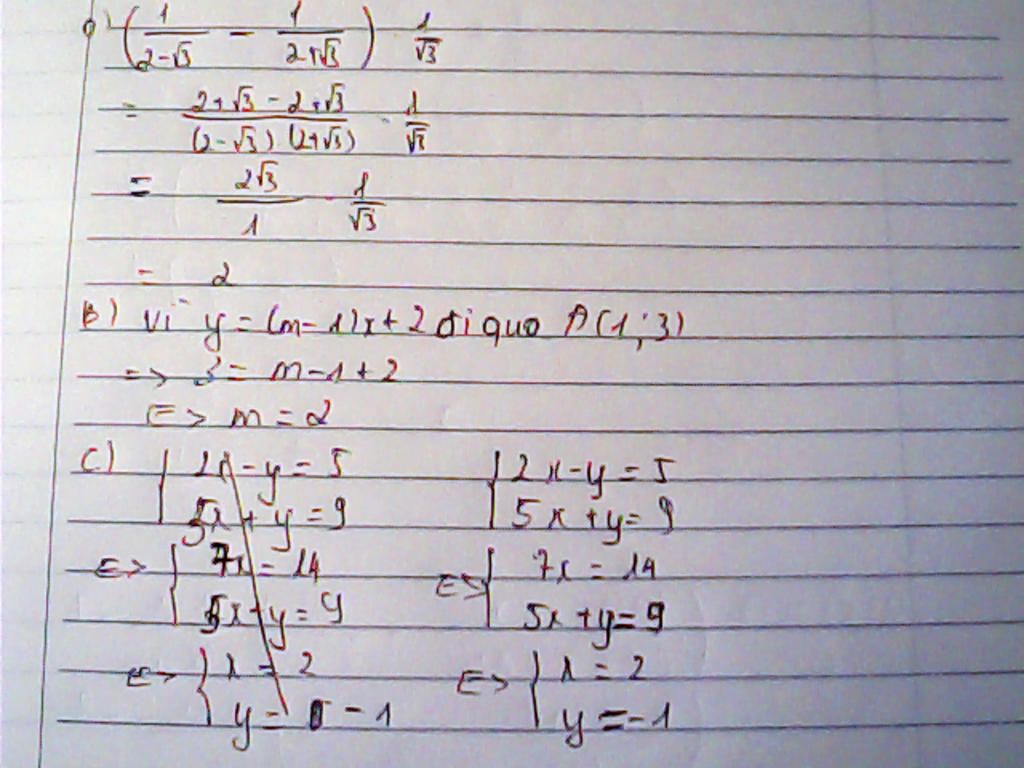 a) (1/(2-√3) - 1/(2+√3)) · 1/√3
= (2+√3 - 2+√3)/((2-√3)(2+√3)) · 1/√3
= 2√3/1 · 1/√3
= 2
B) vì y = (m-1)x + 2 đi qua A(1;3)
=> 3 = m-1+2
<=> m = 2
c) { 2x - y = 5
5x + y = 9
<=> { 7x = 14
5x + y = 9
<=> { x = 2
y = -1
{ 2x - y = 5
5x + y = 9
<=> { 7x = 14
5x + y = 9
<=> { x = 2
y = -1